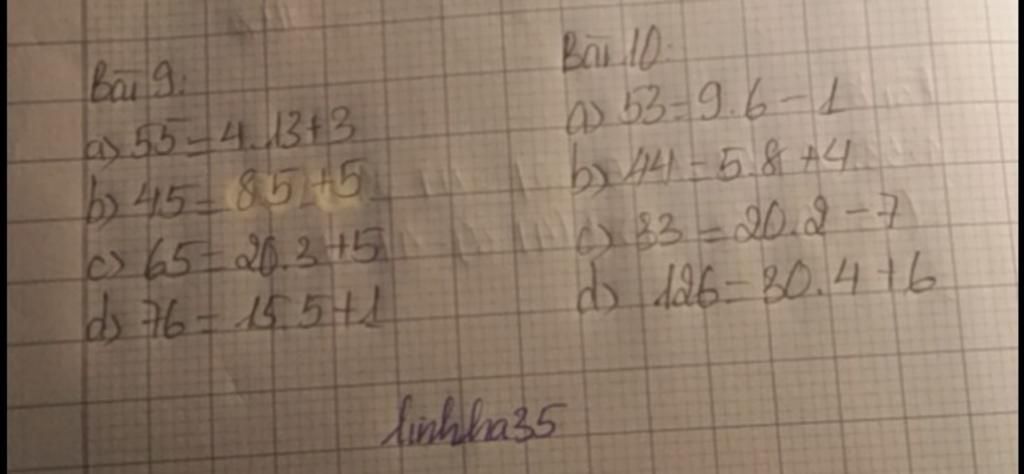 Bài 9:
a) 55 = 4.13+3
b) 45 = 8.5+5
c) 65 = 20.3+5
d) 76 = 15.5+1
Bài 10:
a) 53 = 9.6-1
b) 44 = 5.8+4
c) 33 = 20.2-7
d) 126 = 30.4+6
linhha35